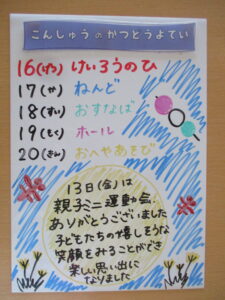 こんしゅうのかつどうよてい
16(げつ) けいろうのひ
17(か) ねんど
18(すい) おすなば
19(もく) ホール
20(きん) おへやあそび
13日(金)は
親子ミニ運動会、
ありがとうございました
子どもたちの嬉しそうな
笑顔をみることができ
楽しい思い出に
なりました